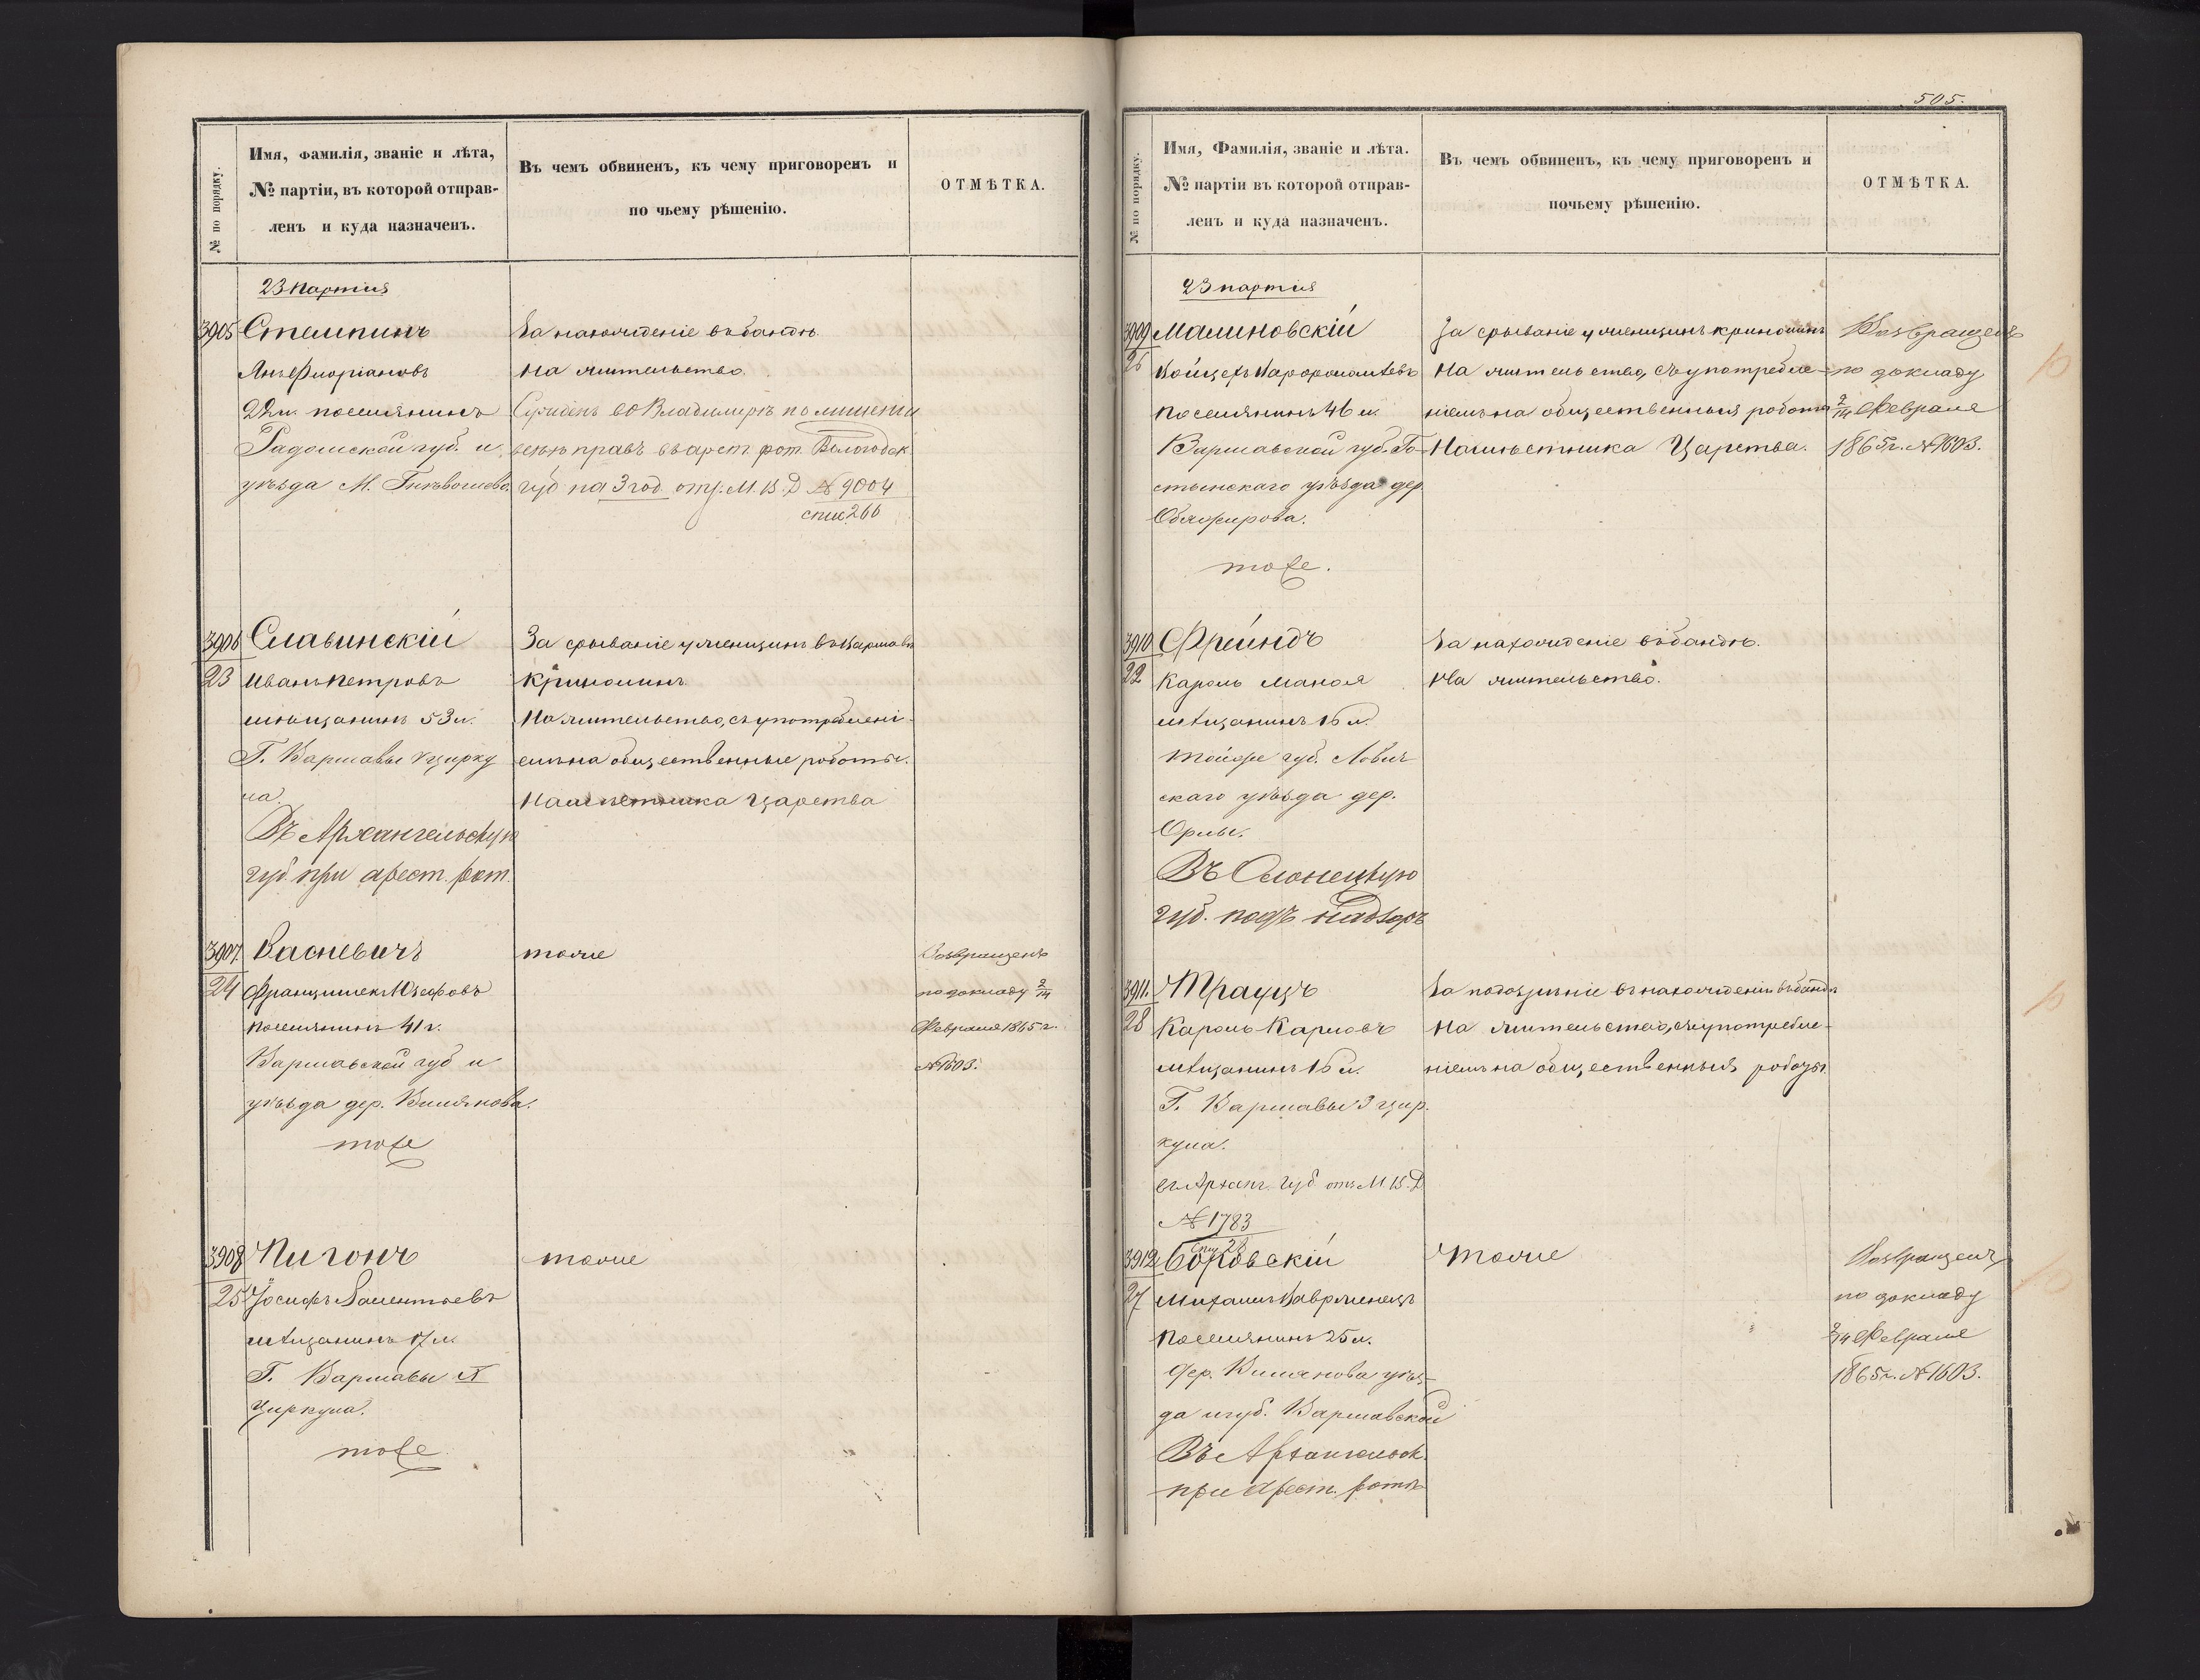 505.
№ по порядку.
Имя, фамилія, званіе и лѣта,
№ партіи, въ которой отправ-
ленъ и куда назначенъ.
Въ чемъ обвиненъ, къ чему приговоренъ и
по чьему рѣшенію.
ОТМѢТКА.
23 партія
3905
Стемпинъ
Янъ Флоріановъ
22 л. поселянинъ
Радомской губ. и
уѣзда М.
За нахожденіе въ бандѣ
на жительство.
Сужденъ во Владимірѣ по лишеніи
всѣхъ правъ въ арест. рот. Вологодск.
губ на 3 год. отз. М. В. Д № 9004
спис. 266
3906
23
Славинскій
Иванъ Петровъ
мѣщанинъ 53 л.
Г. Варшавы цирку
ла.
Въ Архангельскую
губ. при арест. рот.
За срываніе у женщинъ въ Варшавѣ
кринолинъ
На жительство, съ употреблені
емъ на общественные работы.
Намѣстника Царства
3907
24
Васневичъ
Францишекъ Юзефовъ
поселянинъ 41 г.
Варшавской губ и
уѣзда дер. Вилянова.
тоже
тоже
Возвращенъ
по докладу 2/14
Февраля 1865 г.
№ 1603.
3908
25
Пигонъ
Іосифъ Валентьевъ
мѣщанинъ 17 л.
Г. Варшавы
Циркула.
тоже
тоже
№ по порядку.
Имя, Фамилія, званіе и лѣта.
№ партіи въ которой отправ-
ленъ и куда назначенъ.
Въ чемъ обвиненъ, къ чему приговоренъ и
почьему рѣшенію.
ОТМѢТКА.
23 партія
3909
26
Малиновскій
Войцехъ
Поселянинъ 46 л.
Варшавской губ. Го-
стынскаго уѣзда дер.
тоже.
За срываніе у женщинъ кринолинъ
На жительство, съ употребле-
ніемъ на общественныя работы
Намѣстника Царства.
Возвращенъ
по докладу
2/14 Февраля
1865 г. № 1603.
3910
22
Фрейндъ
Кароль
мѣщанинъ 16 л.
тойже губ. Лович
скаго уѣзда дер.
Орлы.
Въ Олонецкую
губ. подъ надзоръ
За нахожденіе въ бандѣ.
На жительство.
3911.
28
Трауцъ
Кароль Карловъ
мѣщанинъ 16 л.
Г. Варшавы 3 цир.
кула.
въ Архан. губ. отз. М. В. Д
№ 1783
спи 28
За подозрѣніе въ нахожденіи въ бандѣ
На жительство, съ употребле-
ніемъ на общественныя работы.
3912
27
Боровскій
Михаилъ
Поселянинъ 25 л.
дер. Вилянова уѣз-
да и губ. Варшавской
Въ Архангельск.
при арест. ротѣ
тоже
Возвращенъ
по докладу
2/14 Февраля
1865 г. № 1603.